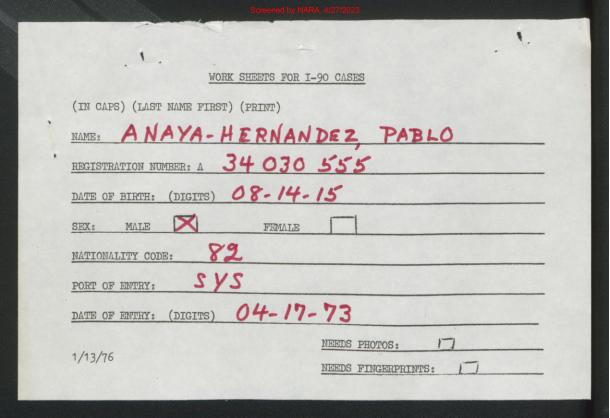 Screened by NARA, 4/27/2023
WORK SHEETS FOR I-90 CASES
(IN CAPS) (LAST NAME FIRST) (PRINT)
NAME: ANAYA-HERNANDEZ, PABLO
REGISTRATION NUMBER: A 34 030 555
DATE OF BIRTH: (DIGITS) 08-14-15
SEX: MALE X FEMALE
NATIONALITY CODE: 82
PORT OF ENTRY: SYS
DATE OF ENTRY: (DIGITS) 04-17-73
NEEDS PHOTOS:
1/13/76
NEEDS FINGERPRINTS: